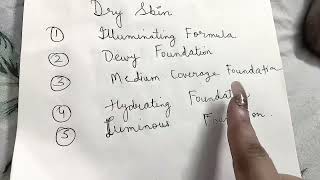 Dry Skin
① Illuminating Formula
② Dewy Foundation
③ Medium Coverage Foundation
④ Hydrating Foundation
⑤ Luminous Foundation.